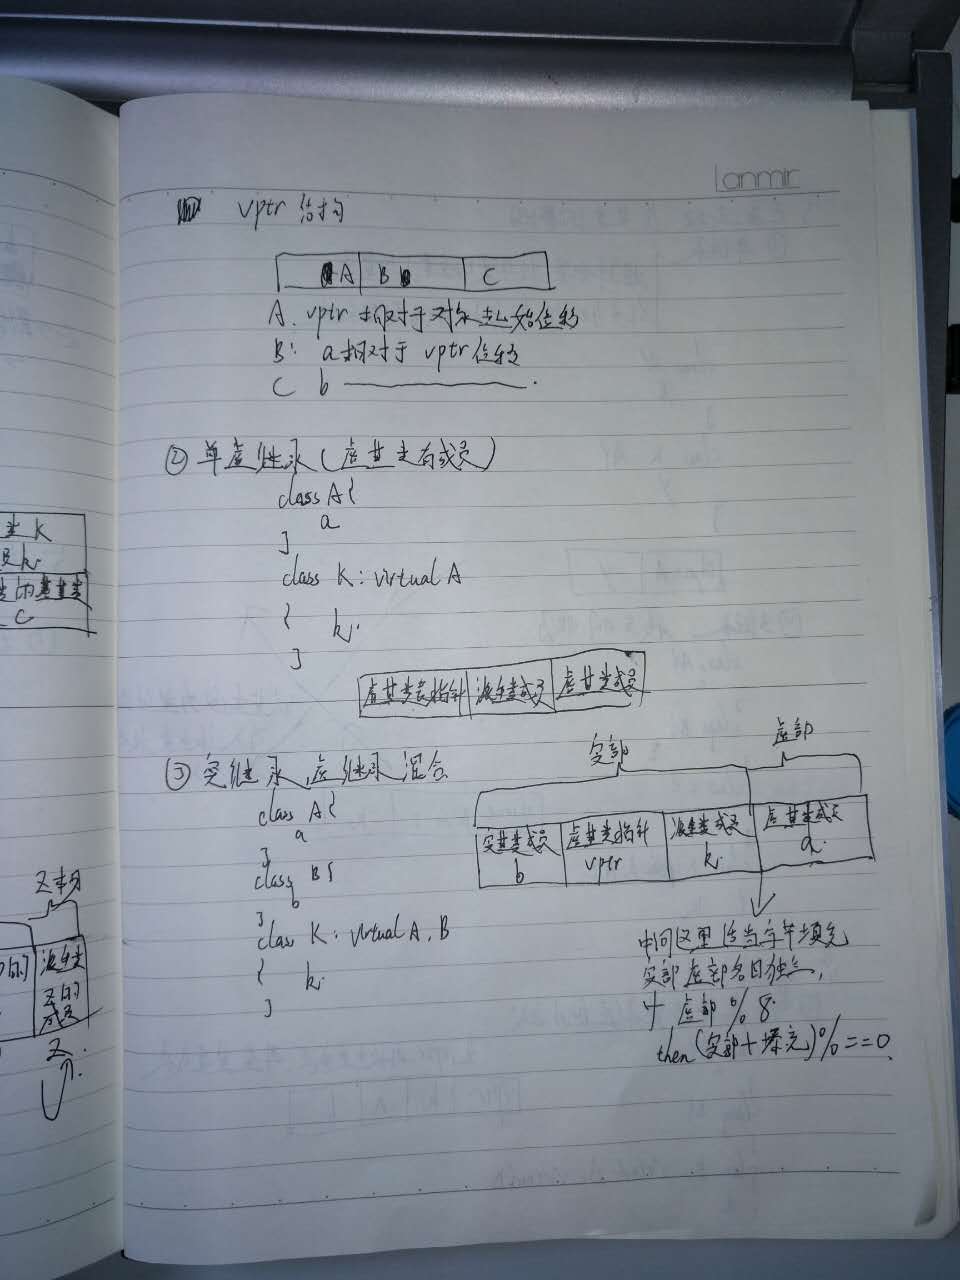 Lanmir
vptr 结构
A B C
A. vptr 相对于对象起始位移
B: a相对于 vptr 位移
C b ———.
② 单虚继承(虚基类有成员)
class A{
a
}
class K: virtual A
{ k.
}
虚基类表指针 派生类成员 虚基类成员
③ 实继承,虚继承混合
实部 虚部
class A{
a
}
class B{
b
}
class K: virtual A, B
{ k.
}
实基类成员 b
虚基类指针 vptr
派生类成员 k.
虚基类成员 a.
中间这里适当字节填充
实部虚部各自独立,
虚部 % 8.
then (实部+填充)%==0.
类 K
员k.
C
Z部分
的
派生类
Z的
成员
Z.